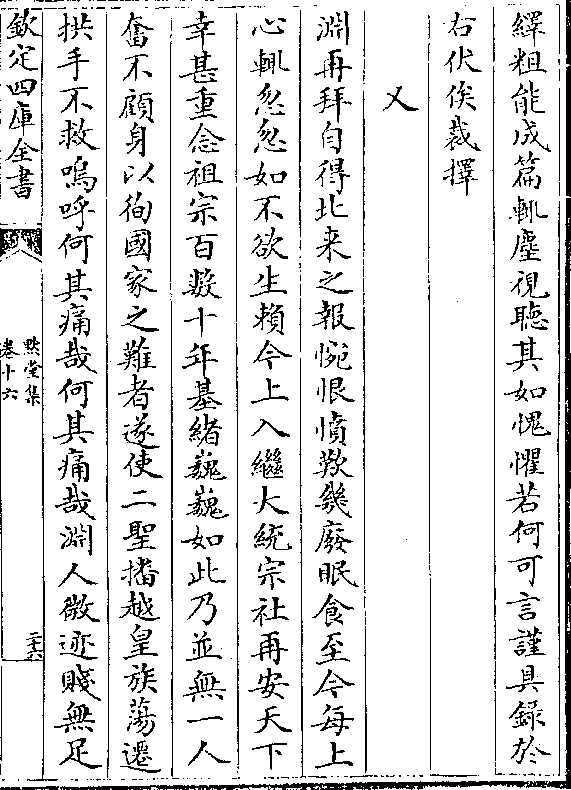 繹粗能成篇輒塵視聽其如愧懼若何可言謹具錄於
右伏俟裁擇
又
淵再拜自得北来之報惋恨憤歎幾廢眠食至今每上
心輒忽忽如不欲生賴今上入繼大統宗社再安天下
幸甚重念祖宗百數十年基緒巍巍如此乃並無一人
奮不顧身以徇國家之難者遂使二聖播越皇族蕩遷
拱手不救嗚呼何其痛哉何其痛哉淵人微迹賤無足
欽定四庫全書
默堂集
卷十六
二十六